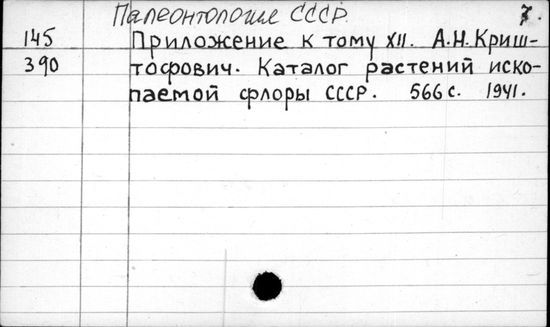 Палеонтология СССР. 7.
145 Приложение к тому XII. А.Н. Криш-
390 тофович. Каталог растений иско-
паемой флоры СССР. 566 с. 1941.